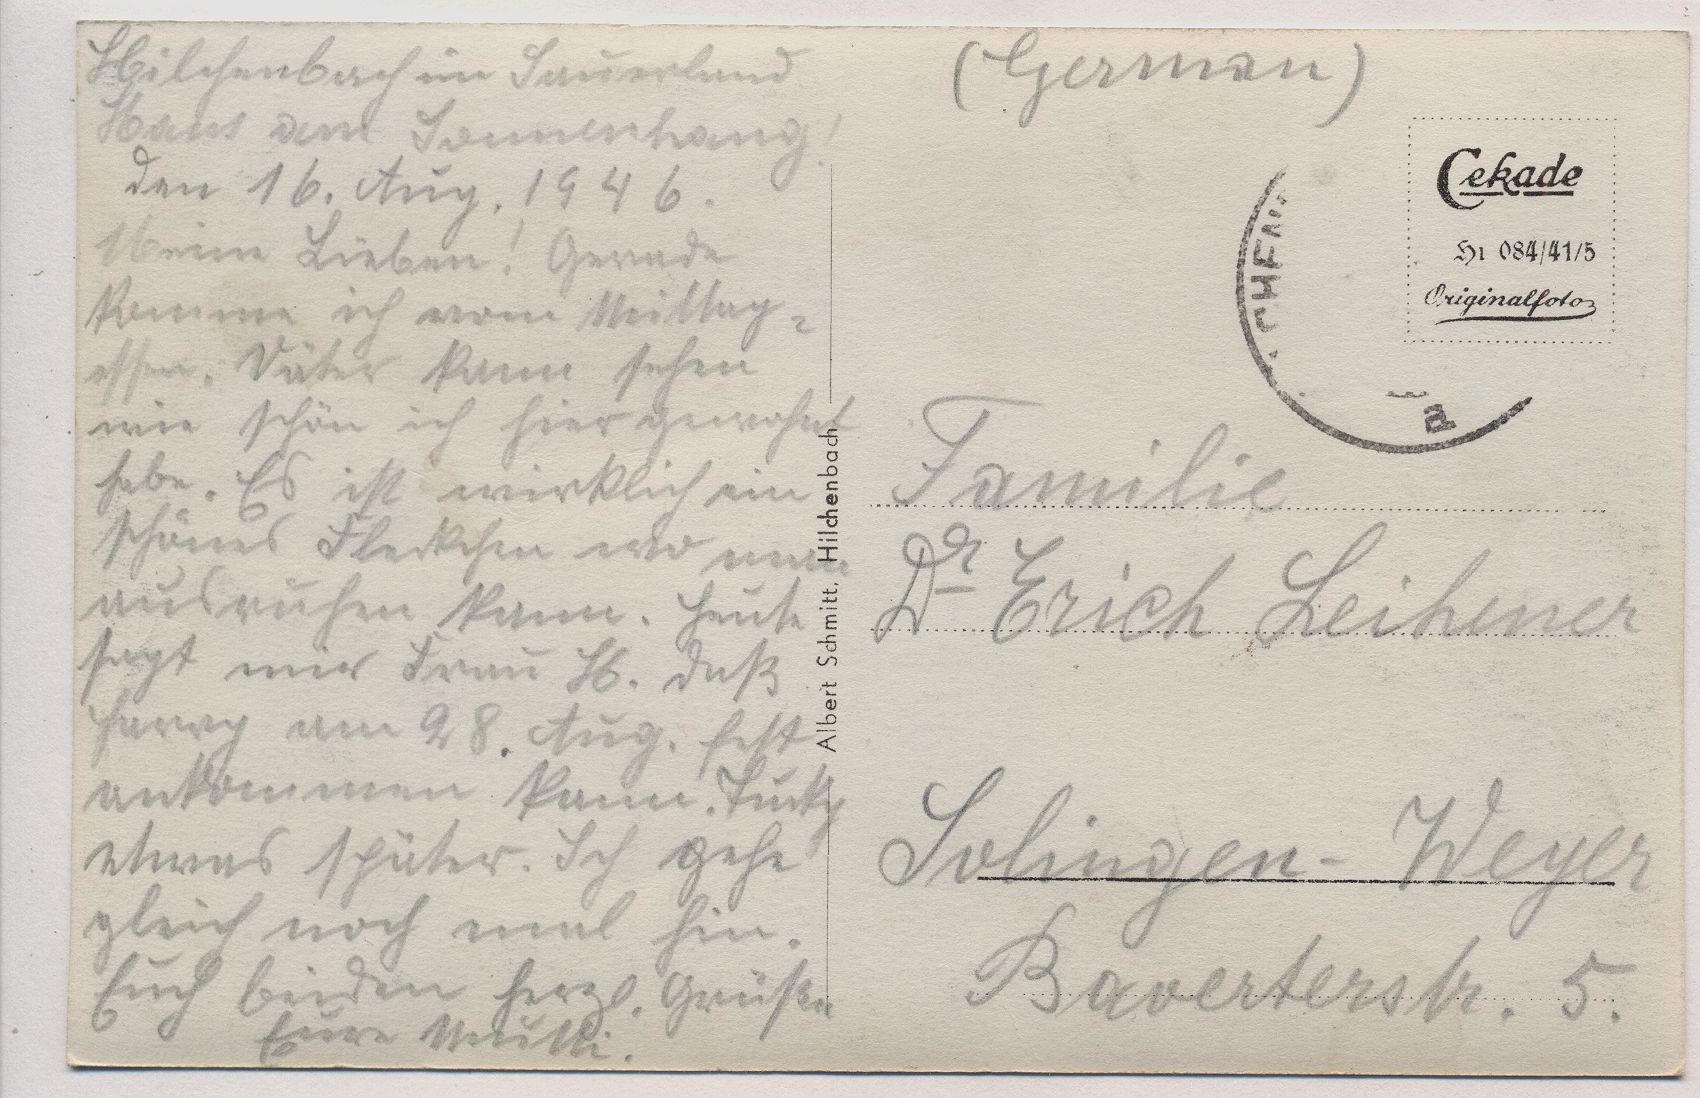 Hilchenbach im Sauerland
Haus am Sonnenhang!
den 16. Aug. 1946.
Meine Lieben! Gerade
komme ich vom Mittag-
essen. Väter kann sehen
wie schön ich hier gewohnt
habe. Es ist wirklich ein
schönes Fleckchen wo man
ausruhen kann. Heute
sagt mir Frau H. daß
Harry am 28. Aug. fest
ankommen kann.
etwas später. Ich gehe
gleich noch mal hin.
Euch beiden herzl. Grüße
Eure Mutti.
Albert Schmitt, Hilchenbach
(German)
Cekade
Hi 084/41/5
Originalfoto
CHEN
Familie
Dr Erich Leihener
Solingen-Weyer
Bavertersr. 5.